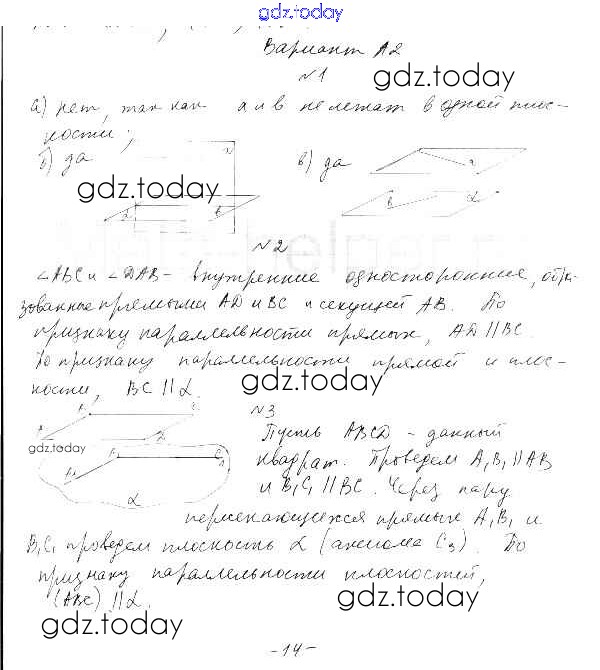 gdz.today
Вариант А2
№1
gdz.today
а) нет, так как a и b не лежат в одной плос-
кости;
б) да
в) да
gdz.today
№2
∠ABC и ∠DAB - внутренние односторонние, обра-
зованные прямыми AD и BC и секущей AB. По
признаку параллельности прямых, AD || BC.
По признаку параллельности прямой и плос-
кости, BC || α.
gdz.today
№3
Пусть ABCD - данный
gdz.today
квадрат. Проведем A₁B₁ || AB
и B₁C₁ || BC. Через пару
α
пересекающихся прямых A₁B₁ и
B₁C₁ проведем плоскость α (аксиома С₃). По
признаку параллельности плоскостей,
(ABC) || α.
gdz.today
gdz.today
-14-